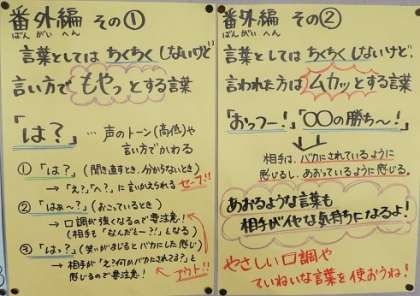 番外編 その①
ばんがいへん
言葉としてはちくちくしないけど
言い方でもやっとする言葉
「は？」…声のトーン(高低)や
言い方でかわる
①「は？」(聞き直すとき、分からないとき)
→「え？」「へ？」に言いかえられる セーフ!!
②「はぁ〜？」(おこっているとき)
→口調が強くなるので要注意！
(相手も「なんだと〜？」となる)
③「はっ？」(笑いがまじるとバカにした感じ)
→相手が「え？何かバカにされてる？」と
感じるので要注意！ アウト!!
番外編 その②
ばんがいへん
言葉としてはちくちくしないけど、
言われた方はムカッとする言葉
「おっつー！」「〇〇の勝ち〜！」
↓
相手は、バカにされているように
感じるし、あおっているように感じる。
あおるような言葉も
相手がイヤな気持ちになるよ！
やさしい口調や
ていねいな言葉を使おうね！